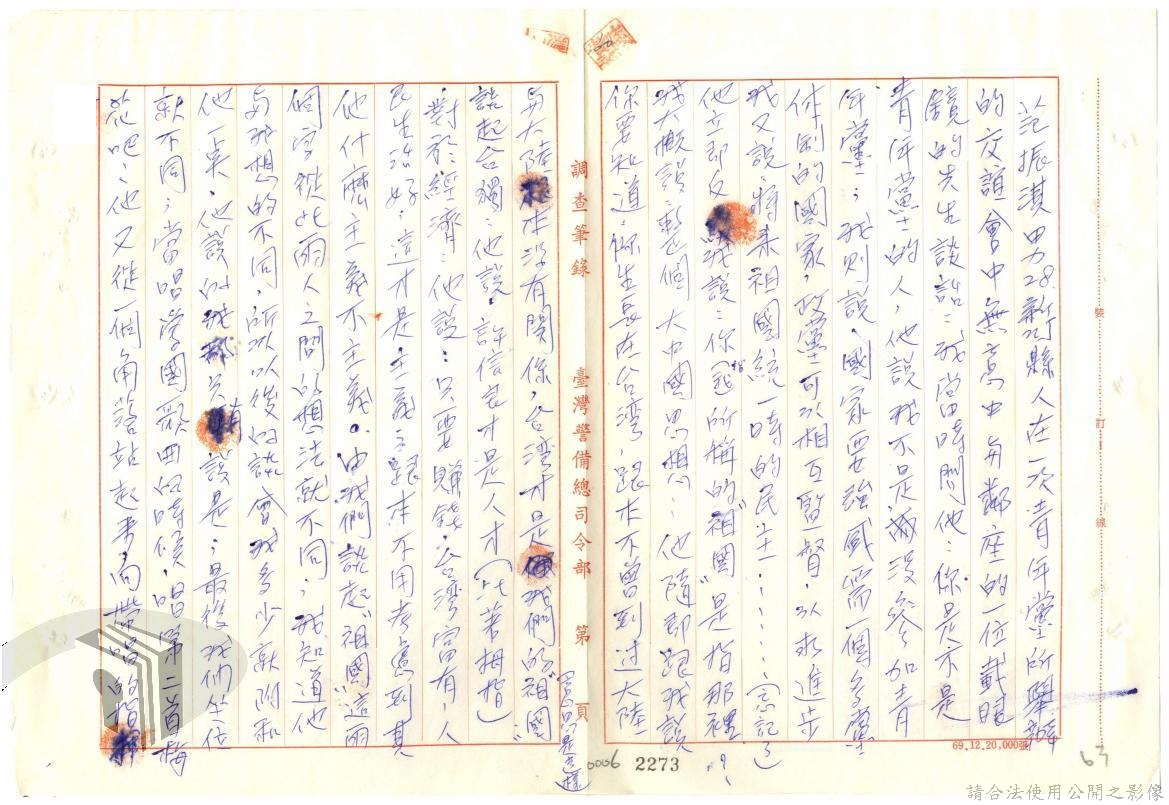 范振淇男28.新竹縣人在一次青年黨所舉辦
的交誼會中無意中與鄰座的一位戴眼
鏡的先生談話：我當時問他：你是不是
青年黨的人，他說我不是，我沒參加青
年黨；我則說，國家要強盛需一個多黨
体制的國家，政黨可以相互監督，以求進步
我又說，將來祖國統一時的民主……（忘記了）
他立即反 我說：你 所稱的"祖國"是指那裡？
我大概說：整個大中國思想…他隨即跟我說
你要知道：你生長在台湾，跟本不曾到过大陸
調查筆錄 臺灣警備總司令部 第 頁
與大陸根本沒有關係，台湾才是我們的"祖國"
談起台獨：他說，許信良才是人才（比著拇指）
對於經濟：他說：只要賺錢，台湾富有，人
民生活好，這才是主義；跟本不用考慮到其
他什麼主義不主義。由我們談起"祖國"這兩
個字從此兩人之間的想法就不同，我知道他
與我想的不同，所以以後的話會我多少就附和
他一桌，他說的我都只 說是；最後我們坐位
就不同；當唱學國歌曲的時候，唱第二首梅
花吧：他又從一個角落站起來，向帶唱的指揮
69.12.20,000張
裝 訂 線
0006 2273
63
請合法使用公開之影像